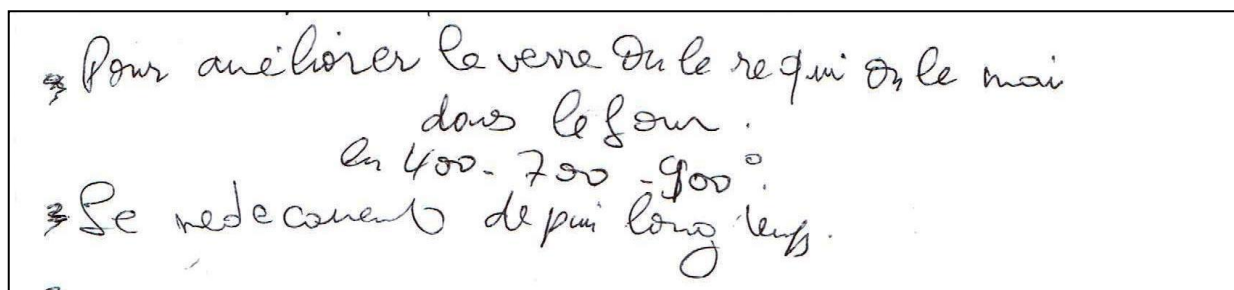 * Pour améliorer le verre On le re qui on le mai
dans le four.
en 400 - 700 - 900°.
* Se depui long temps.